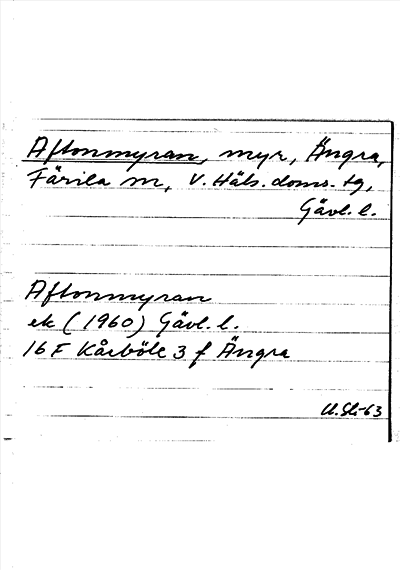 Aftonmyran, myr, Ängra,
Färila sn, V. Häls. doms. tg,
Gävl. l.
Aftonmyran
ek (1960) Gävl. l.
16 F Kårböle 3 f Ängra